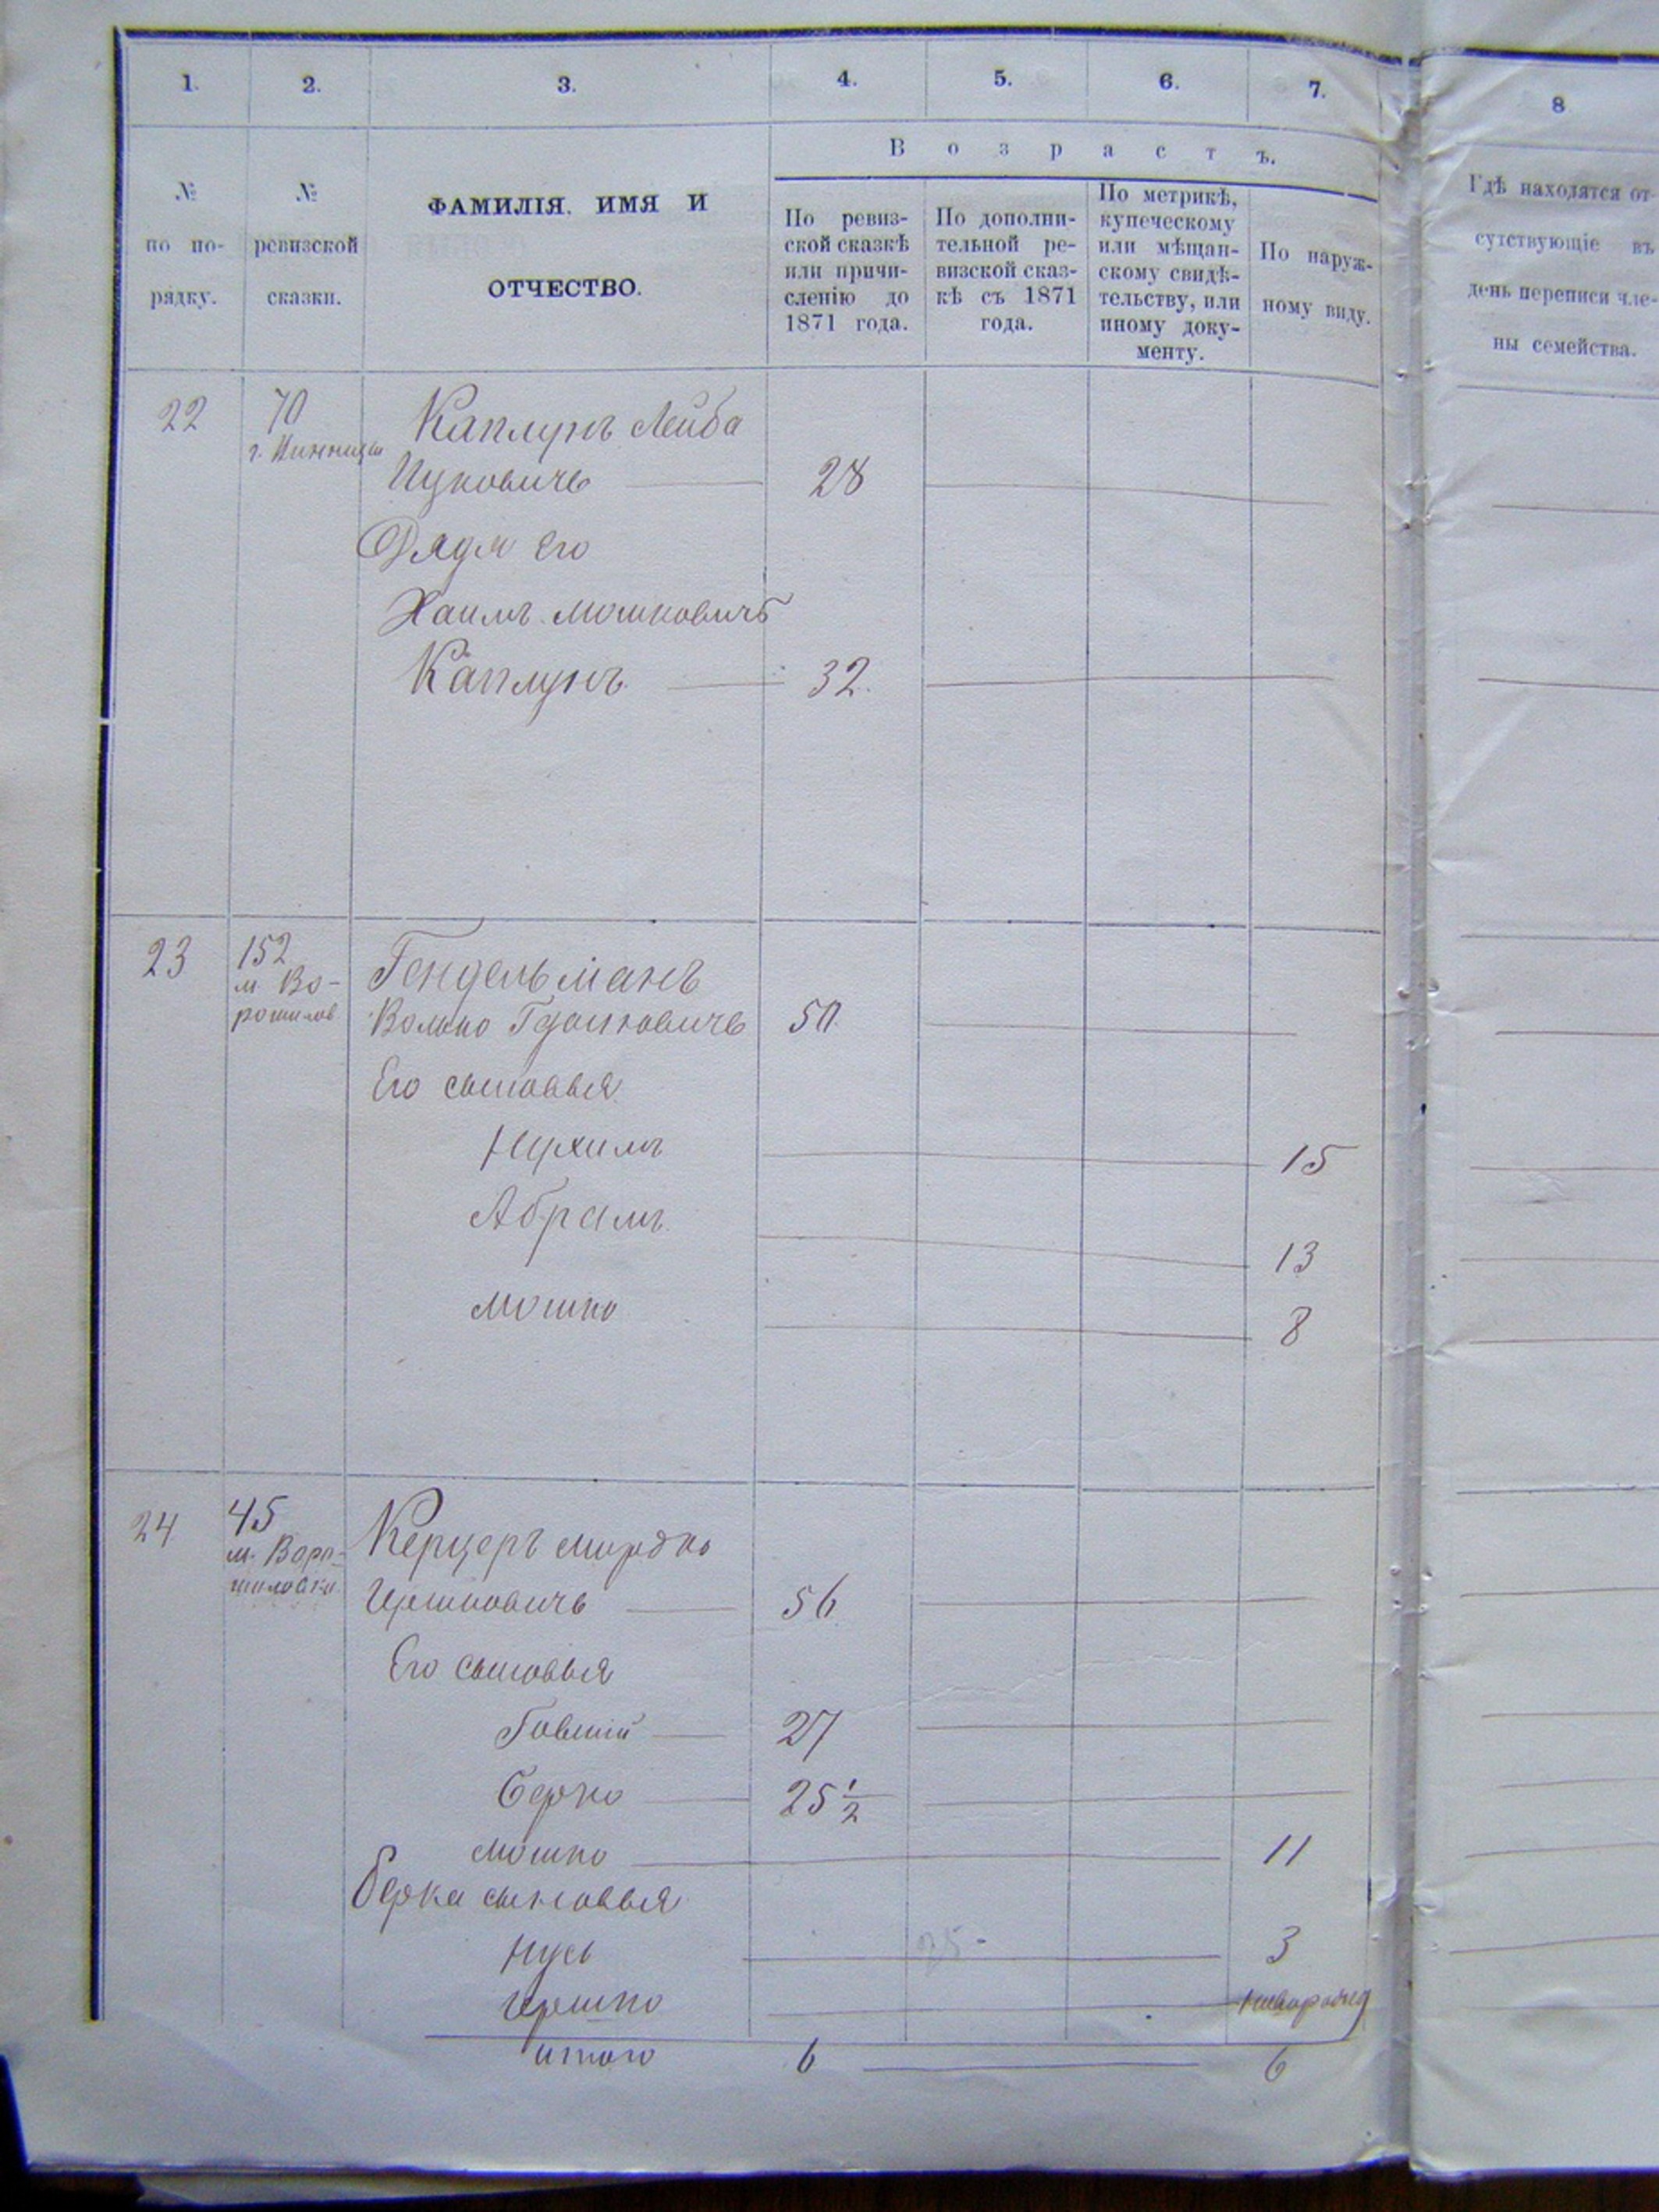 1. 2. 3. 4. 5. 6. 7. 8
№ по по-рядку.
№ ревизской сказки.
ФАМИЛІЯ. ИМЯ И
ОТЧЕСТВО.
Возрастъ.
По ревиз-
ской сказкѣ
или причи-
сленію до
1871 года.
По дополни-
тельной ре-
визской сказ-
кѣ съ 1871
года.
По метрикѣ,
купеческому
или мѣщан-
скому свидѣ-
тельству, или
иному доку-
менту.
По наруж-
ному виду.
Гдѣ находятся от-
сутствующіе въ
день переписи чле-
ны семейства.
22 70 Каплунъ Лейба
г. Винницы
Ицковичъ 28
Дядя его
Хаимъ Мошковичъ
Каплунъ 32.
23 152 Гендельманъ
м. Во-
рошилов Волько 50
Его сыновья
Нухимъ 15
Абрамъ 13
Мошко 8
24 45 Керцеръ Мордко
м. Воро-
шиловки Иршковичъ 56
Его сыновья
Говшій 27
Берко 25 1/2
Мошко 11
Берка сыновья
Нусь 3
Иршко новорожд
итого 6 6